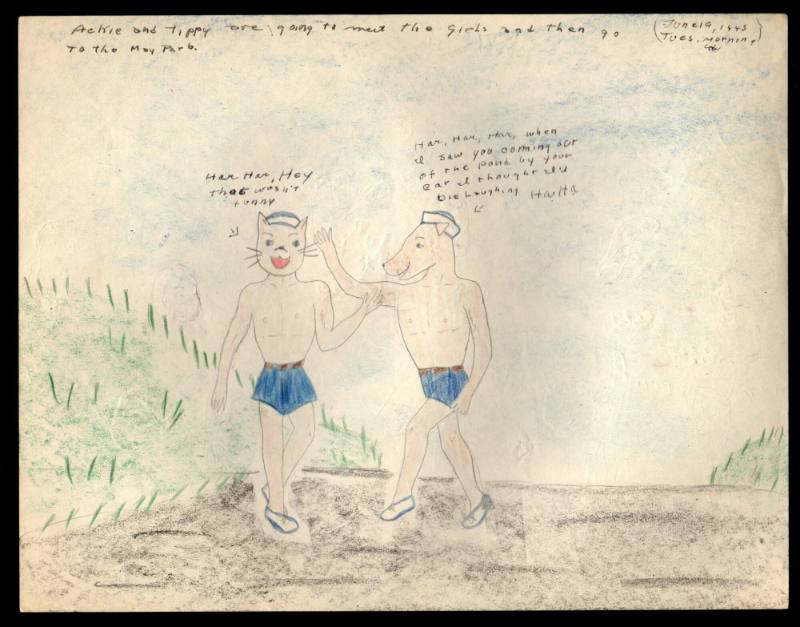 Ackie and Tippy are going to meet the Girls and then go
To the May Park.
(June 19, 1943
Tues. Mornin,)
Har Har, Hey
that wasn't
funny
Har, Har, Har, when
I saw you coming out
of the pond by your
ear I thought I'd
Die Laughing Ha Ha